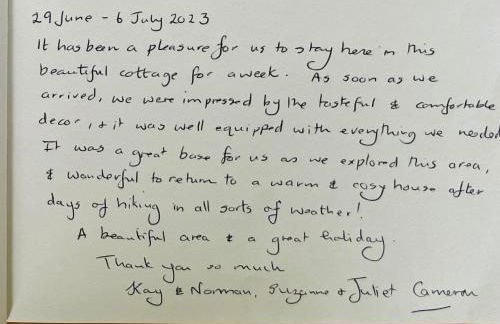 29 June - 6 July 2023
It has been a pleasure for us to stay here in this
beautiful cottage for a week. As soon as we
arrived, we were impressed by the tasteful & comfortable
decor, & it was well equipped with everything we needed
It was a great base for us as we explored this area,
& wonderful to return to a warm & cosy house after
days of hiking in all sorts of weather!
A beautiful area & a great holiday.
Thank you so much
Kay & Norman, Suzanne & Juliet Cameron